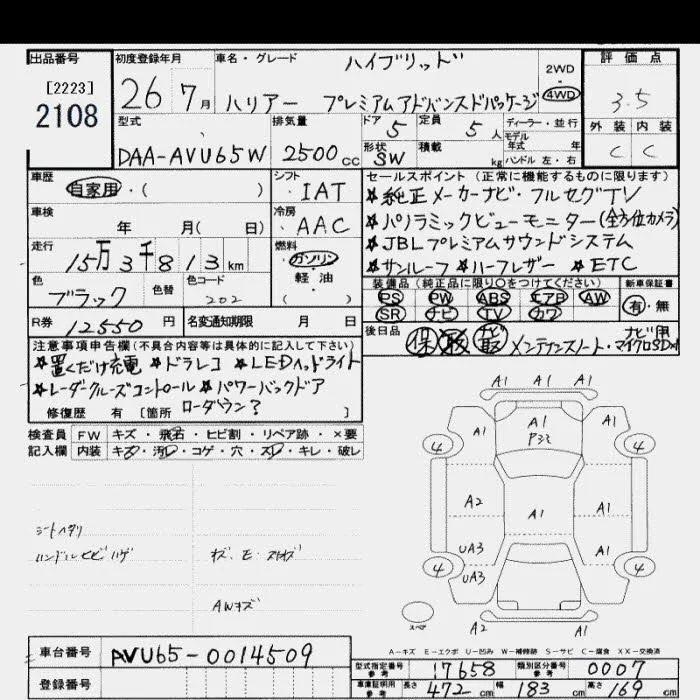 出品番号
[2223]
2108
初度登録年月
26 7月
車名・グレード
ハイブリッド
ハリアー プレミアムアドバンスドパッケージ
2WD
・
4WD
評価点
3.5
外装 内装
C C
型式
DAA-AVU65W
排気量
2500cc
ドア 5
定員 5人
形状 SW
積載 kg
ディーラー・並行
モデル
年式 年
ハンドル 左・右
車歴
自家用・( )
シフト
IAT
車検
年 月( 日)
冷房
AAC
走行
15万3千813km
燃料
ガソリン
・
軽・油
( )
色
ブラック
色替
色コード
202
R券 12550円
名変通知期限 月 日
セールスポイント (正常に機能するものに限ります)
★純正メーカーナビ・フルセグTV
★パノラミックビューモニター(全方位カメラ)
★JBLプレミアムサウンドシステム
★サンルーフ ★ハーフレザー ★ETC
装備品(純正品に限り○をつけてください)
PS PW ABS エアB AW
SR ナビ TV カワ
新車保証書
有・無
後日品
保 取 ナビ取 メンテナンスノート・ナビ用マイクロSD
注意事項申告欄(不具合内容等は具体的に記入して下さい)
★置くだけ充電 ★ドラレコ ★LEDヘッドライト
★レーダークルーズコントロール ★パワーバックドア
ローダウン?
修復歴 有 [箇所 ]
検査員 FW キズ・飛石・ヒビ割・リペア跡・×要
記入欄 内装 キズ・汚レ・コゲ・穴・スレ・キレ・破レ
シートヘタリ
ハンドルヒビハゲ
キズ、E・スレキズ
AWキズ
A1 A1 A1
A1 A1 A1
P32
4 4
A2 A1 A1
UA3 A1
4 4
UA3
スペア
A2 A1
A-キズ E-エクボ U-凹み W-補修跡 S-サビ C-腐食 XX-交換済
車台番号
AVU65-0014509
登録番号
型式指定番号
参考
17658
類別区分番号
参考
0007
車庫証明用
参考
長さ 472cm 幅 183cm 高さ 169cm